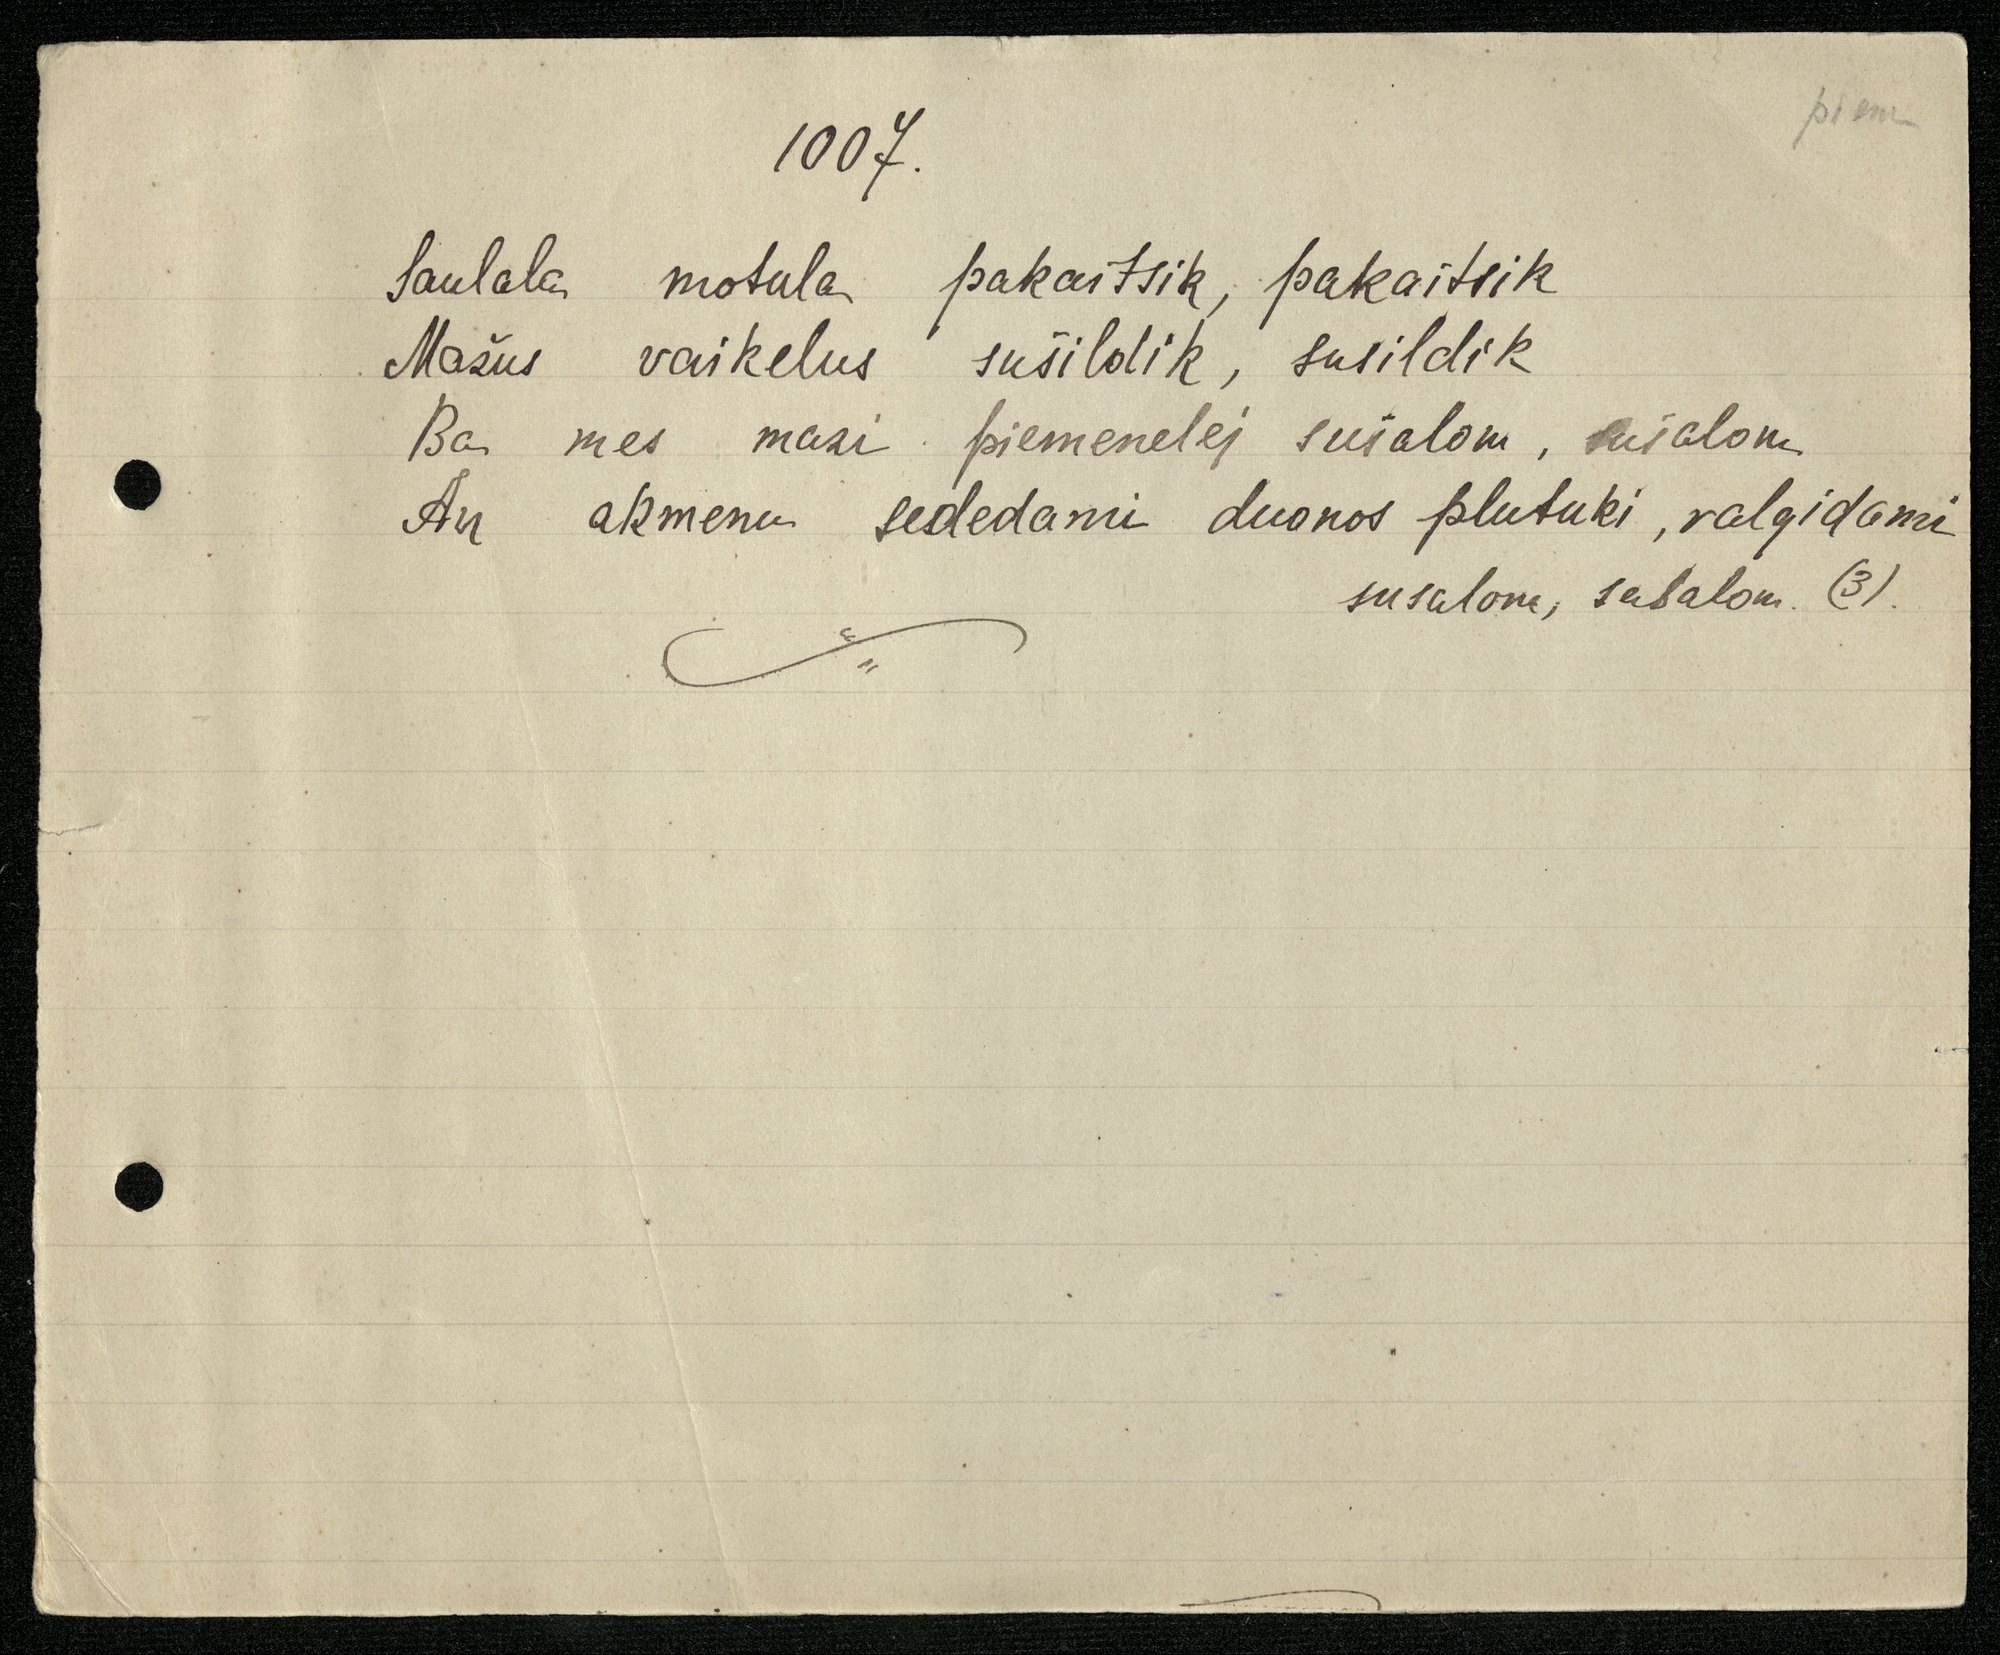 piem
1007.
Saulala motula pakaitsik, pakaitsik
Mažus vaikelus sušildik, susildik
Ba mes mazi piemenelej sušalom, sušalom
An akmenu sededami duonos plutuki, valgidami
susalom, sušalom. (3).